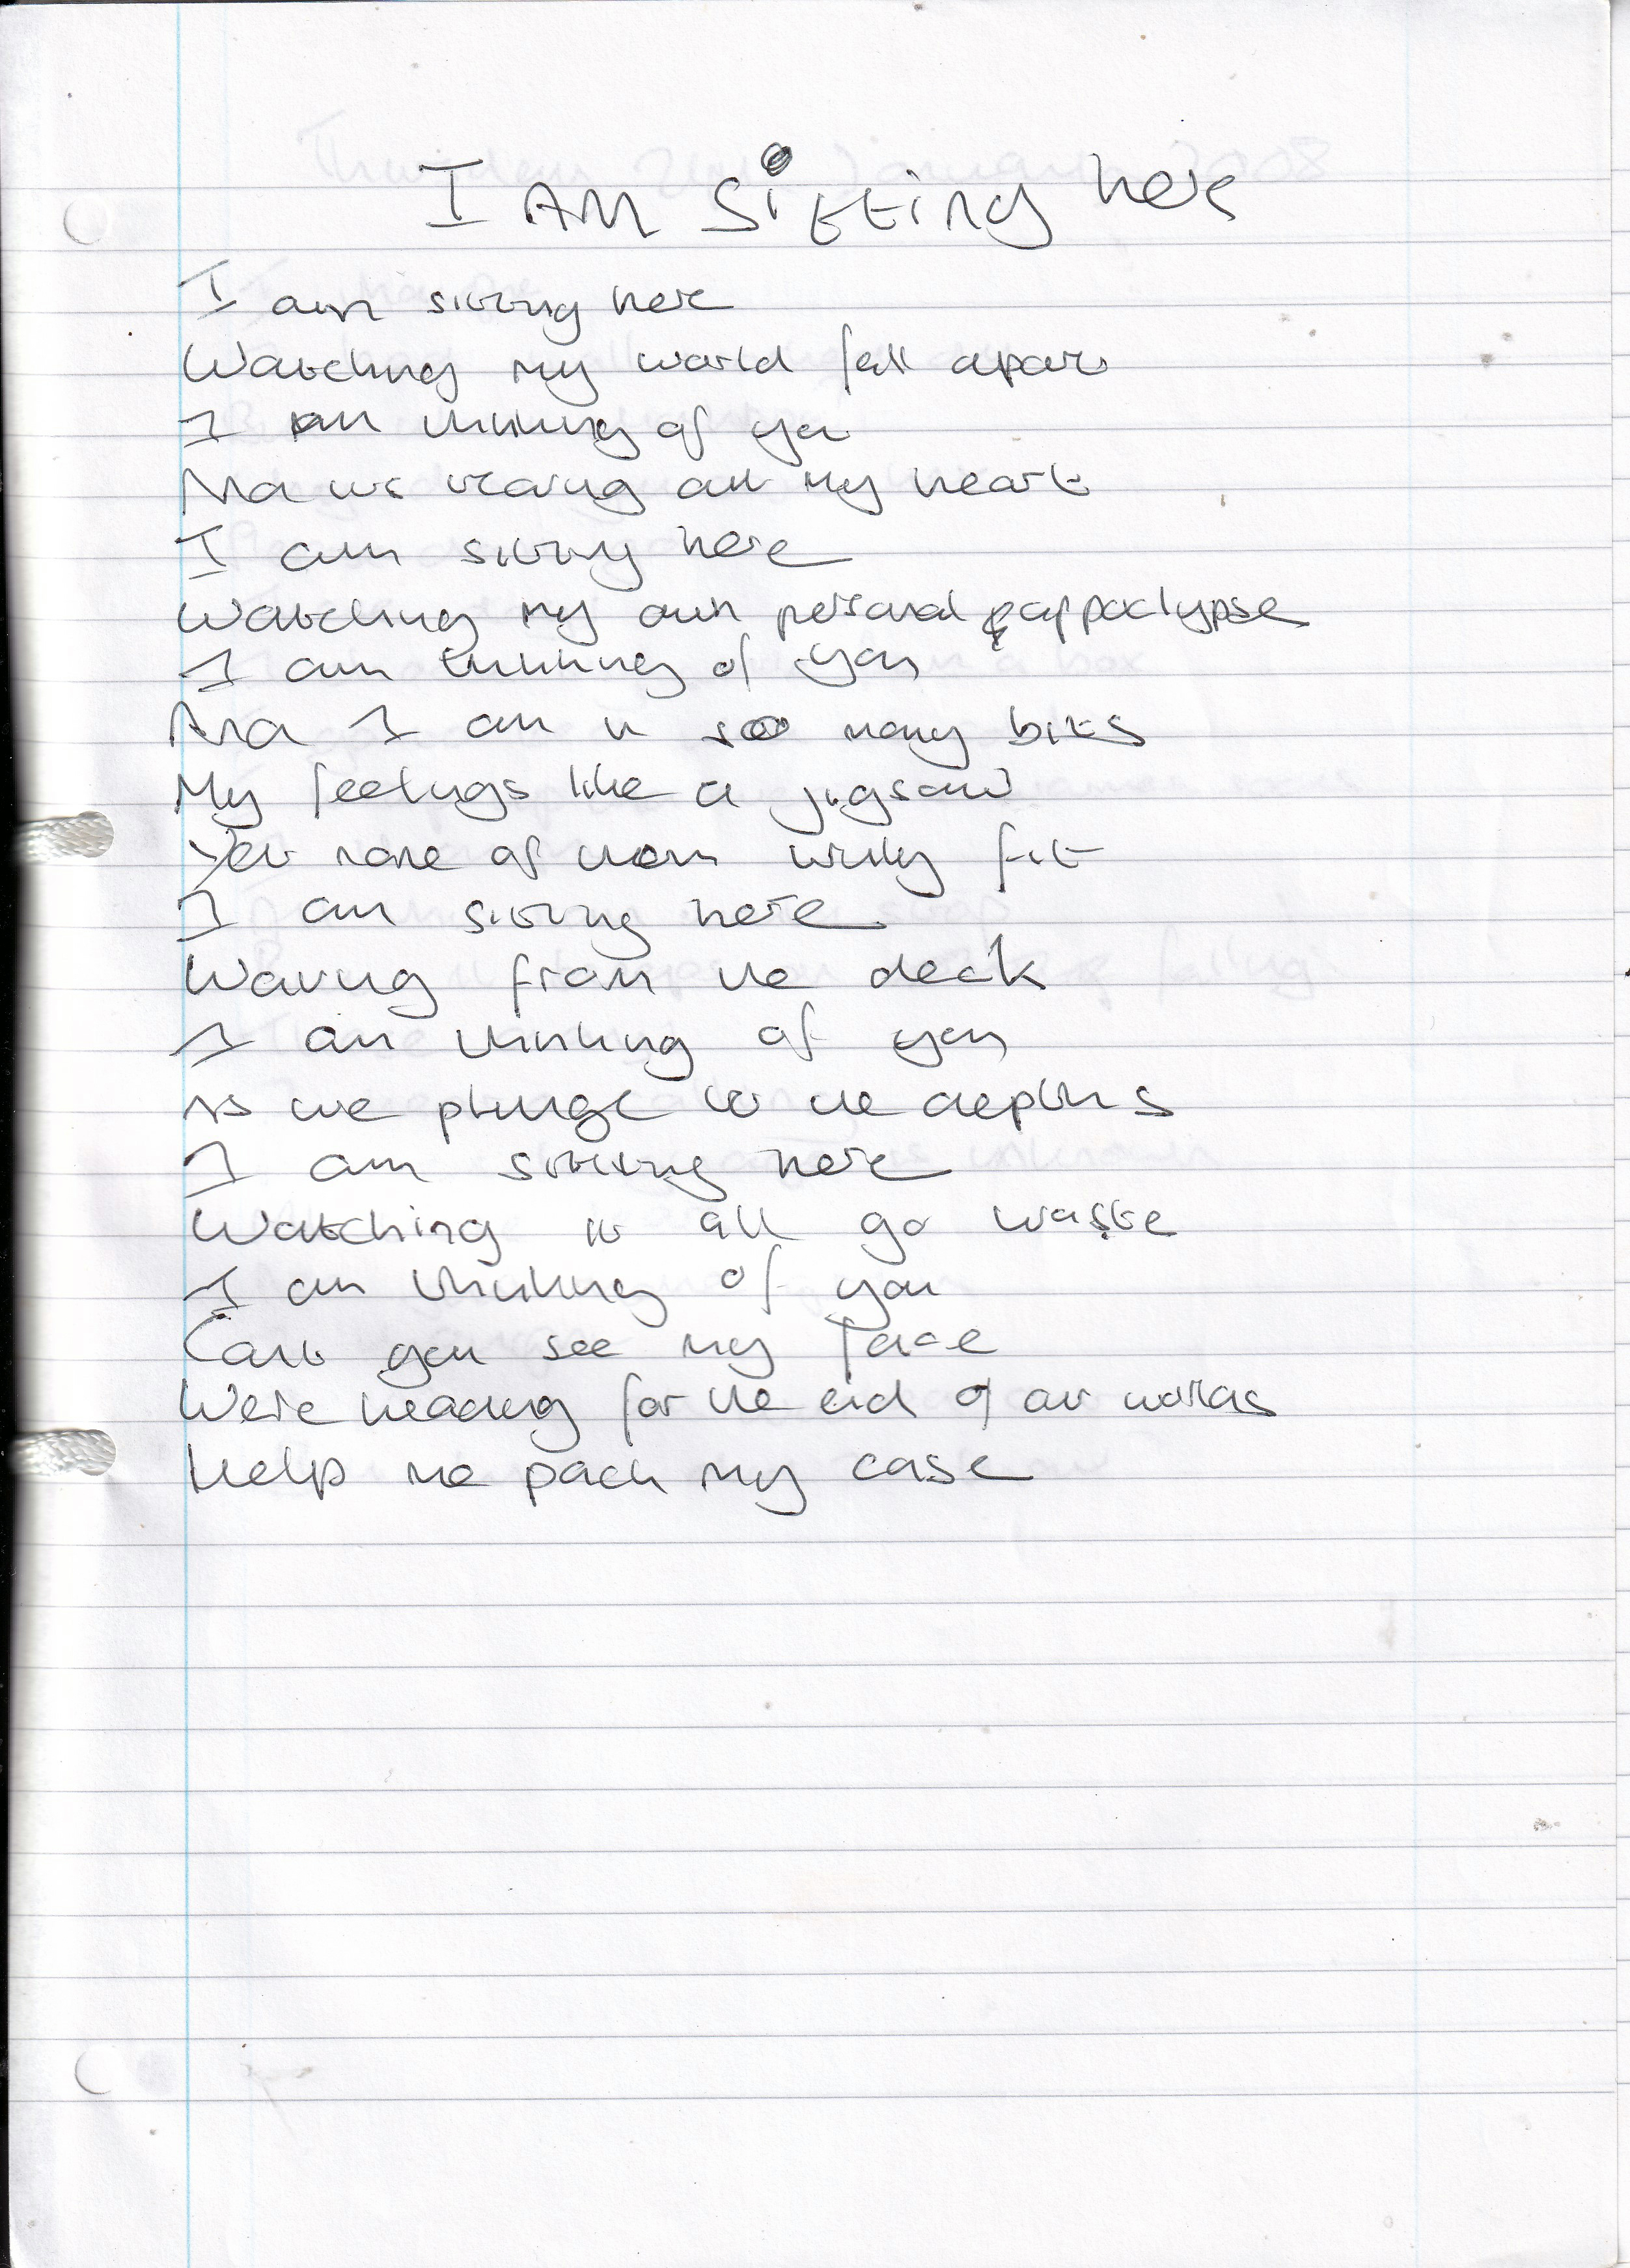 I AM Sitting here
I am sitting here
Watching my world fall apart
I am thinking of you
And its tearing out my heart
I am sitting here
Watching my own personal appoclypse
I am thinking of you
And I am in so many bits
My feelings like a jigsaw
Yet none of them will fit
I am sitting here
Waving from the deck
I am thinking of you
As we plunge to the depths
I am sitting here
Watching it all go waste
I am thinking of you
Cant you see my face
Were heading for the end of our worlds
Help me pack my case